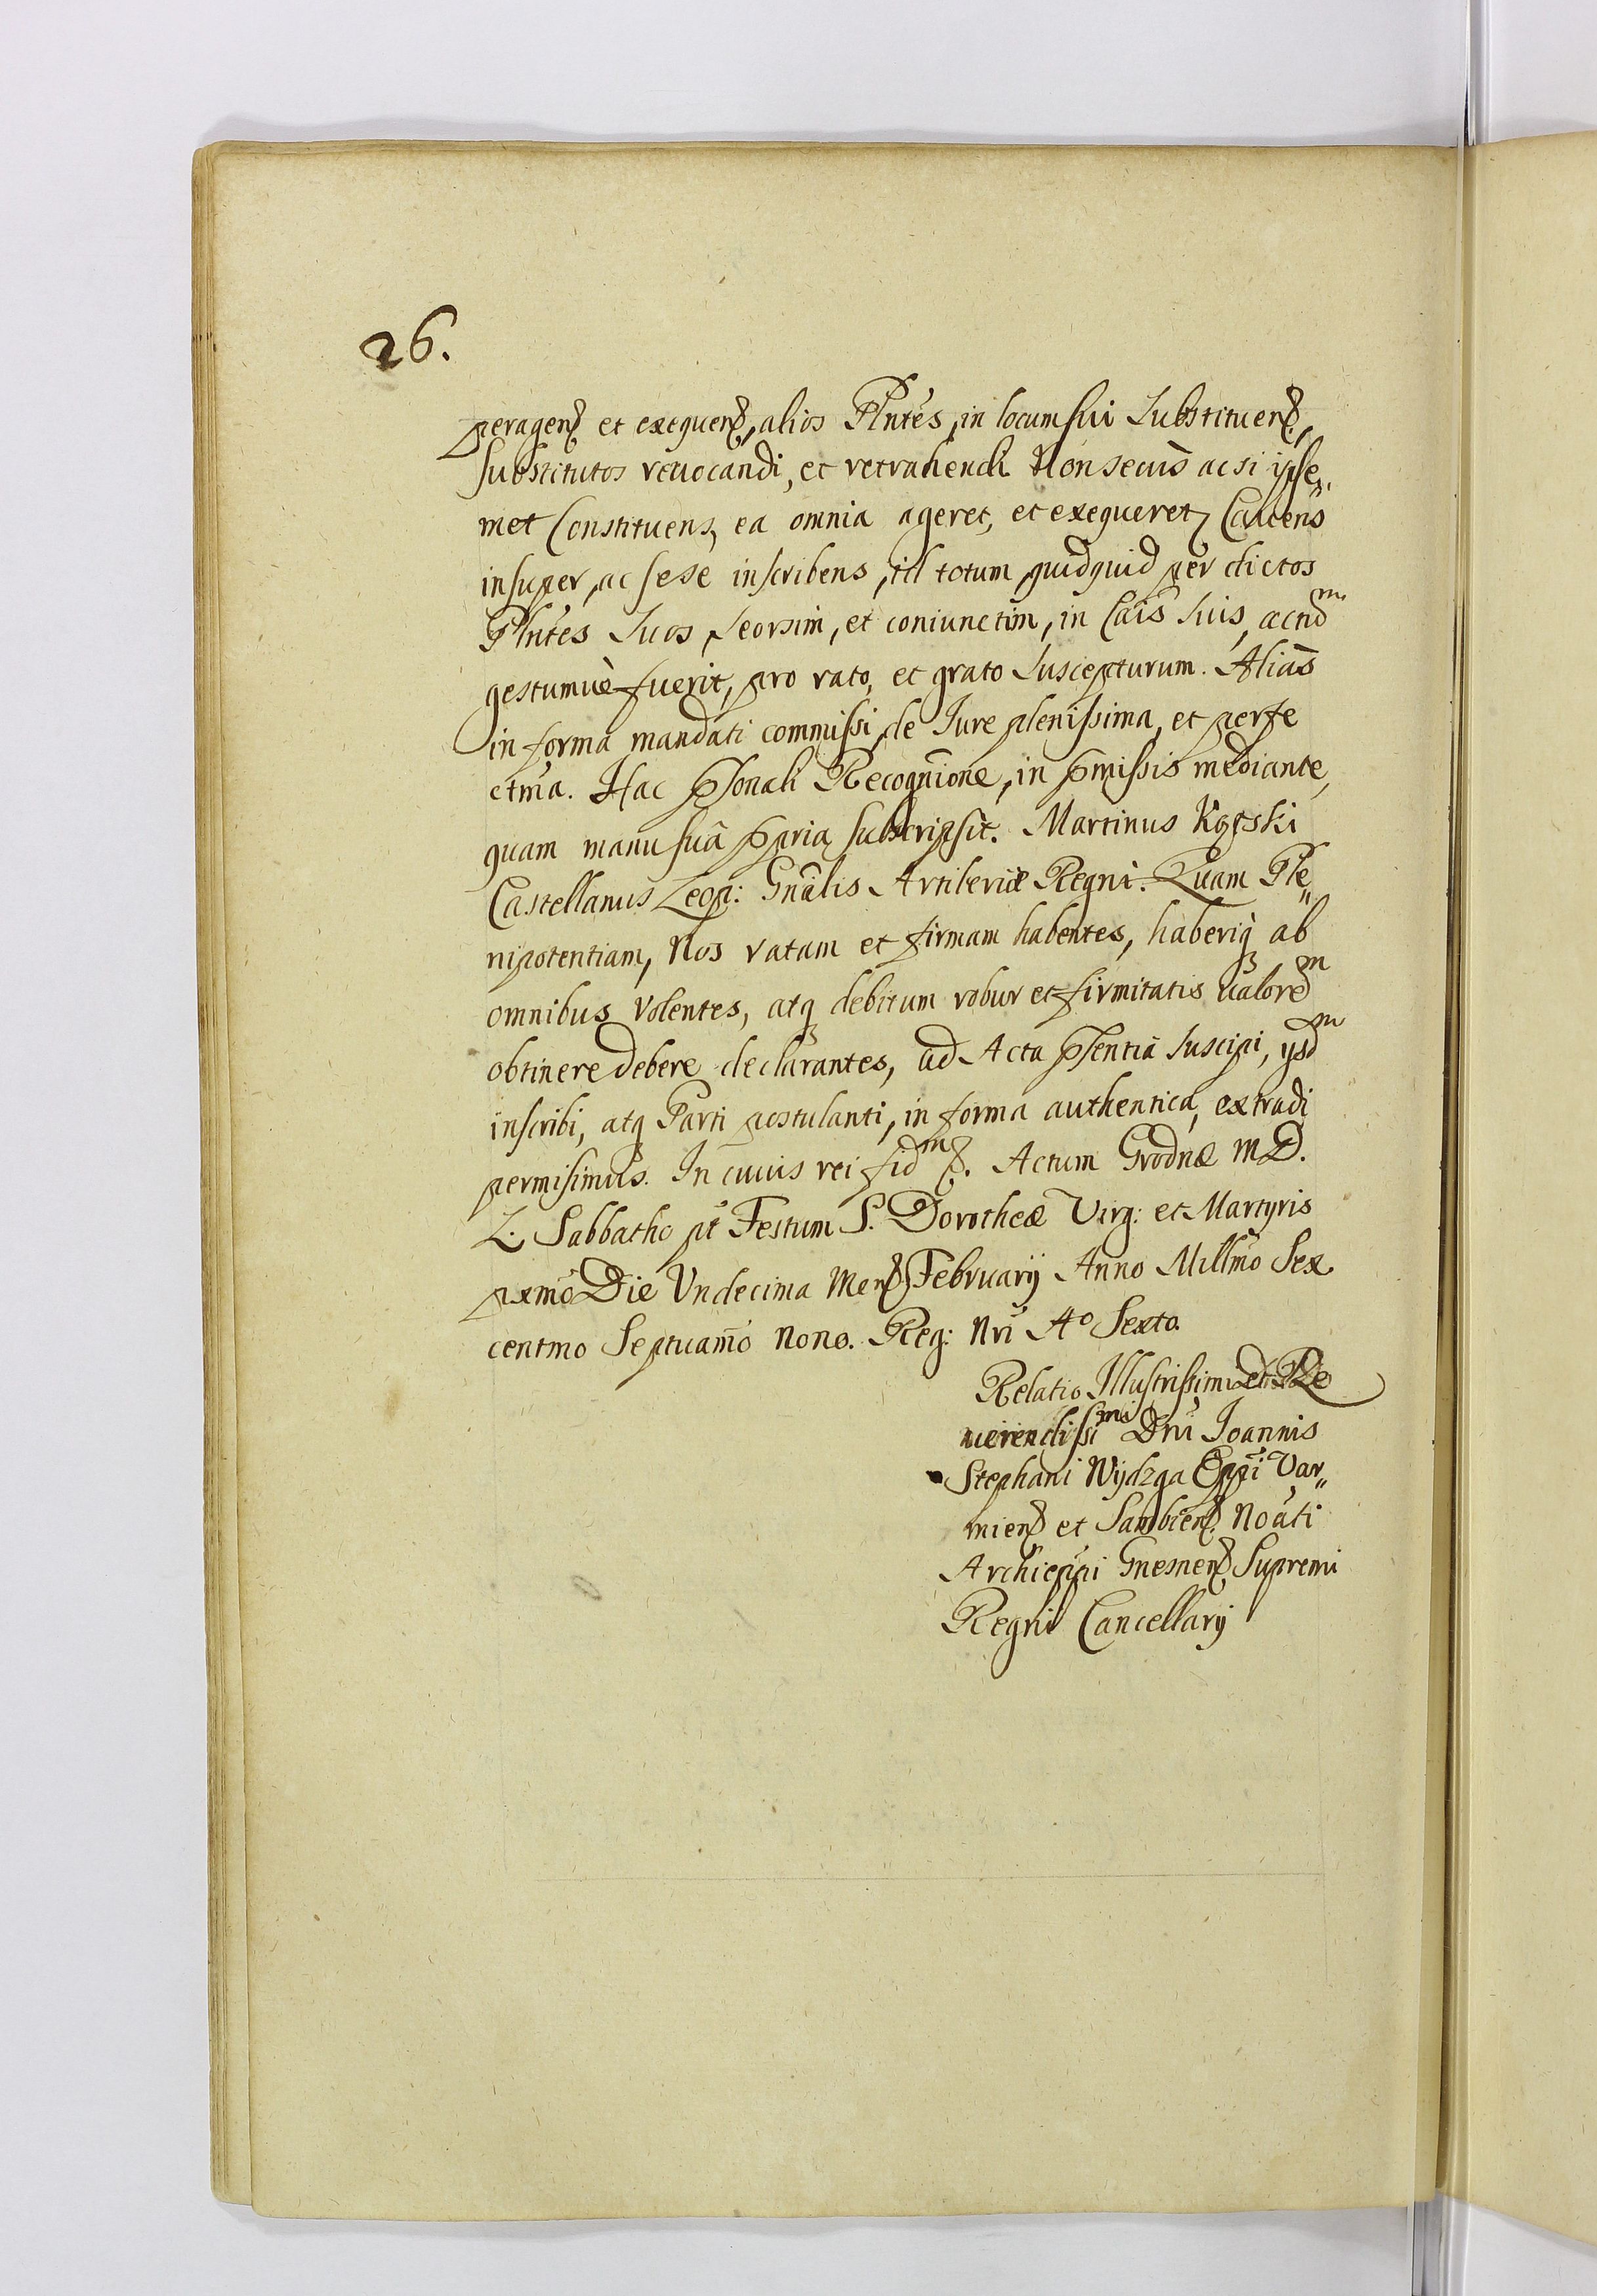 26.
peragen[d] et exequen[d], alios Plntēs, in locum sui Substituen[d],
substitutos reuocandi, et retrahendi Non secūs ac si ipse„
met Constituens, ea omnia ageret, et exequeret[ur] Cauens
insuper, ac sese inscribens, id totum, quidquid per dictos
Plntēs Suos, Seorsim, et coniunctim, in Cāis Suis, actū[m]
gestumuè fuerit, pro rato, et grato Suscepturum. Aliās
in forma mandati commissi, de Iure plenissima, et perfe
ctmā. Hac psonali Recognīone, in pmissis mediante,
quam manu suâ ppria subscripsit. Martinus Kątski
Castellanus Leop: Gnālis Artileriæ Regni. Quam Ple„
nipotentiam, Nos ratam et firmam habentes, haberiq[ue] ab
omnibus volentes, atq[ue] debitum robur et firmitatis ualore[m]
obtinere debere declarantes, ad Acta psentiā Suscipi, ysd[m]
inscribi, atq Parti postulanti, in forma authentica, extradi
permisimus. In cuius rei fid[m] &. Actum Grodnæ M.D.
L. Sabbatho pt Festum S. Dorotheæ Virg: et Martyris
pxmō Die Vndecima Men[s] February Anno Millmō Sex
centmo Septuamō Nono. Reg: Nri Aº Sexto.
Relatio Illustrissimi et Re
uerendissi[mi] Dni Ioannis
Stephani Wydzga Eppi Var„
mien[s] et Sambien[s]. Noāti
Archieppi Gnesnen[s] Supremi
Regni Cancellary